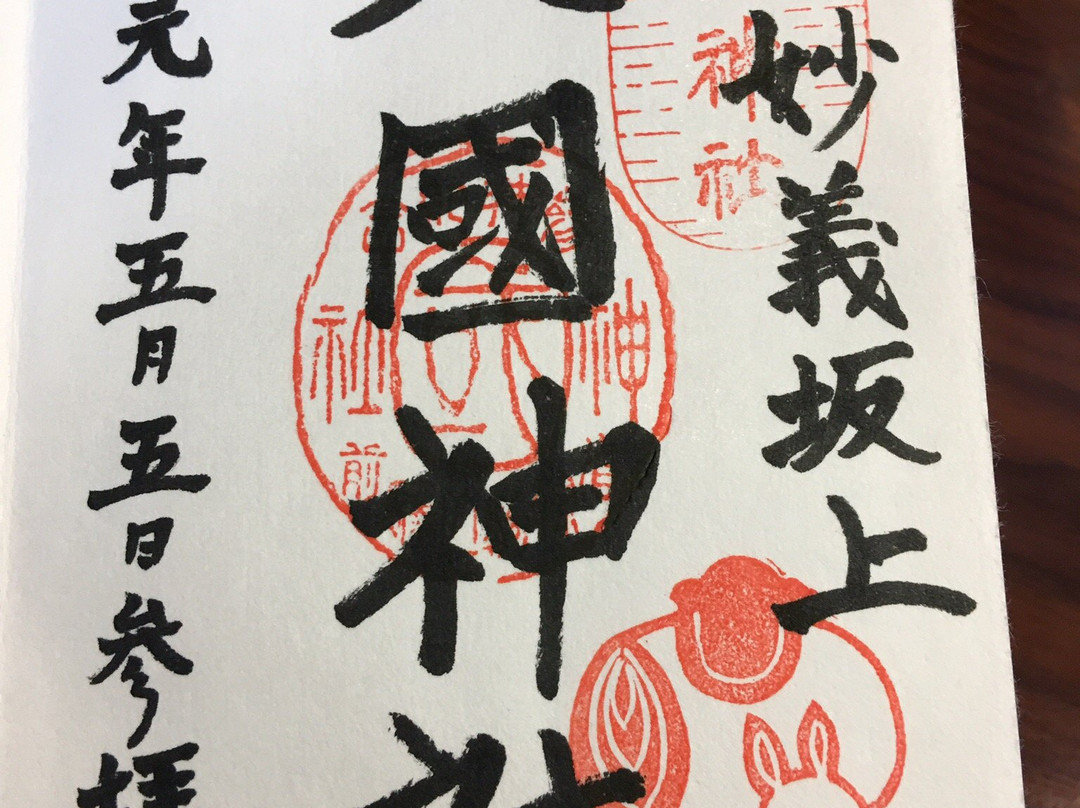 妙義坂上
國神社
元年五月五日參拝
神社
神
社
前